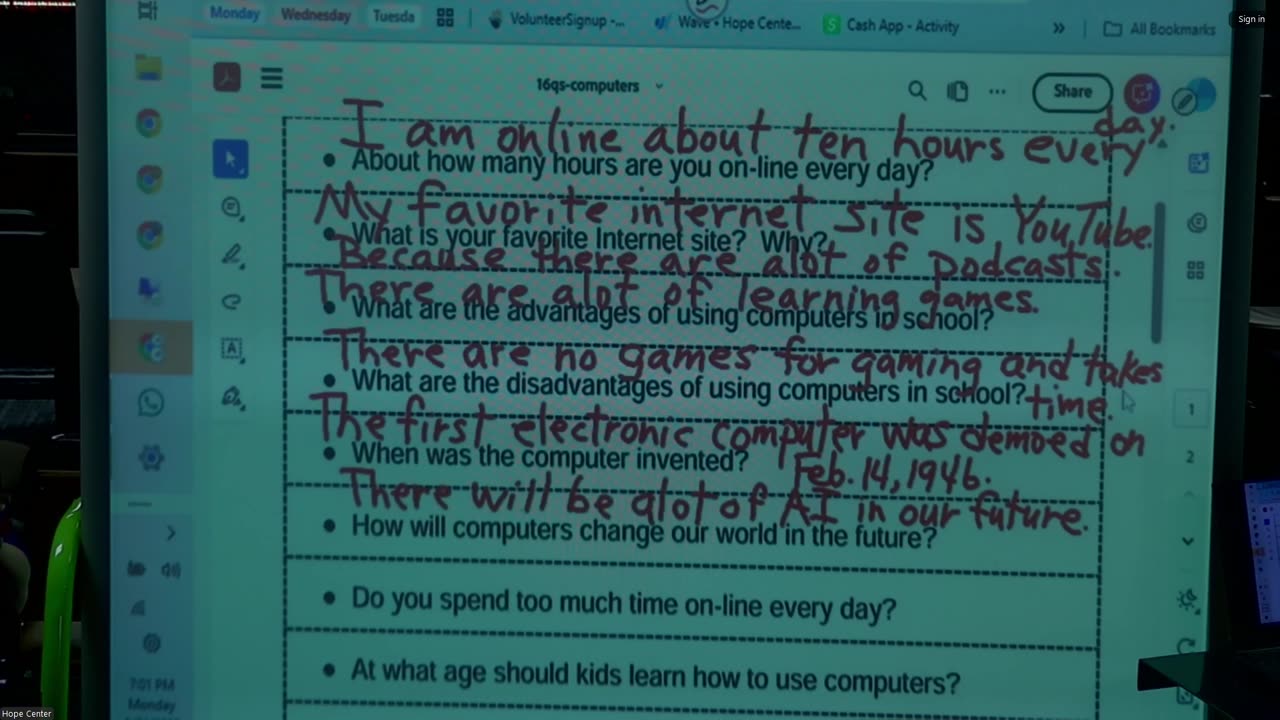 Sign in
Monday Wednesday Tuesda VolunteerSignup -... Wave • Hope Cente... Cash App - Activity » All Bookmarks
16qs-computers
Share
I am online about ten hours every day.
• About how many hours are you on-line every day?
My favorite internet site is YouTube.
• What is your favorite Internet site? Why?
Because there are alot of podcasts.
There are alot of learning games.
• What are the advantages of using computers in school?
There are no games for gaming and takes
• What are the disadvantages of using computers in school?
time.
The first electronic computer was demoed on
• When was the computer invented?
Feb. 14, 1946.
There will be alot of AI in our future.
• How will computers change our world in the future?
• Do you spend too much time on-line every day?
• At what age should kids learn how to use computers?
1
2
7:01 PM
Monday
Hope Center